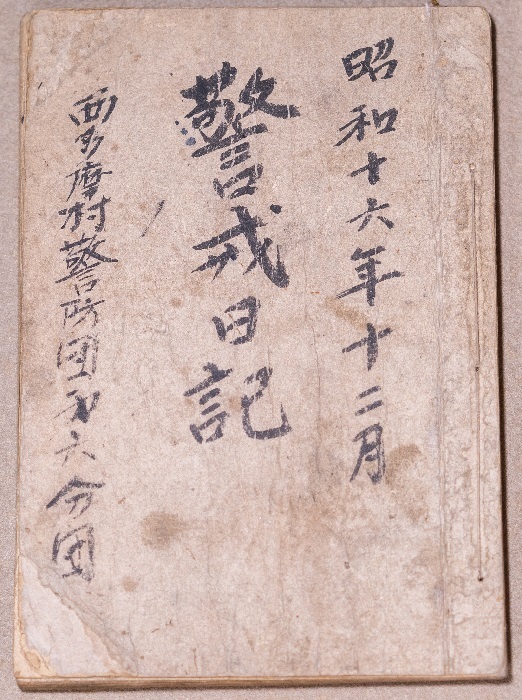 昭和十六年十二月
警戒日記
西多摩村警防団㐧六分团